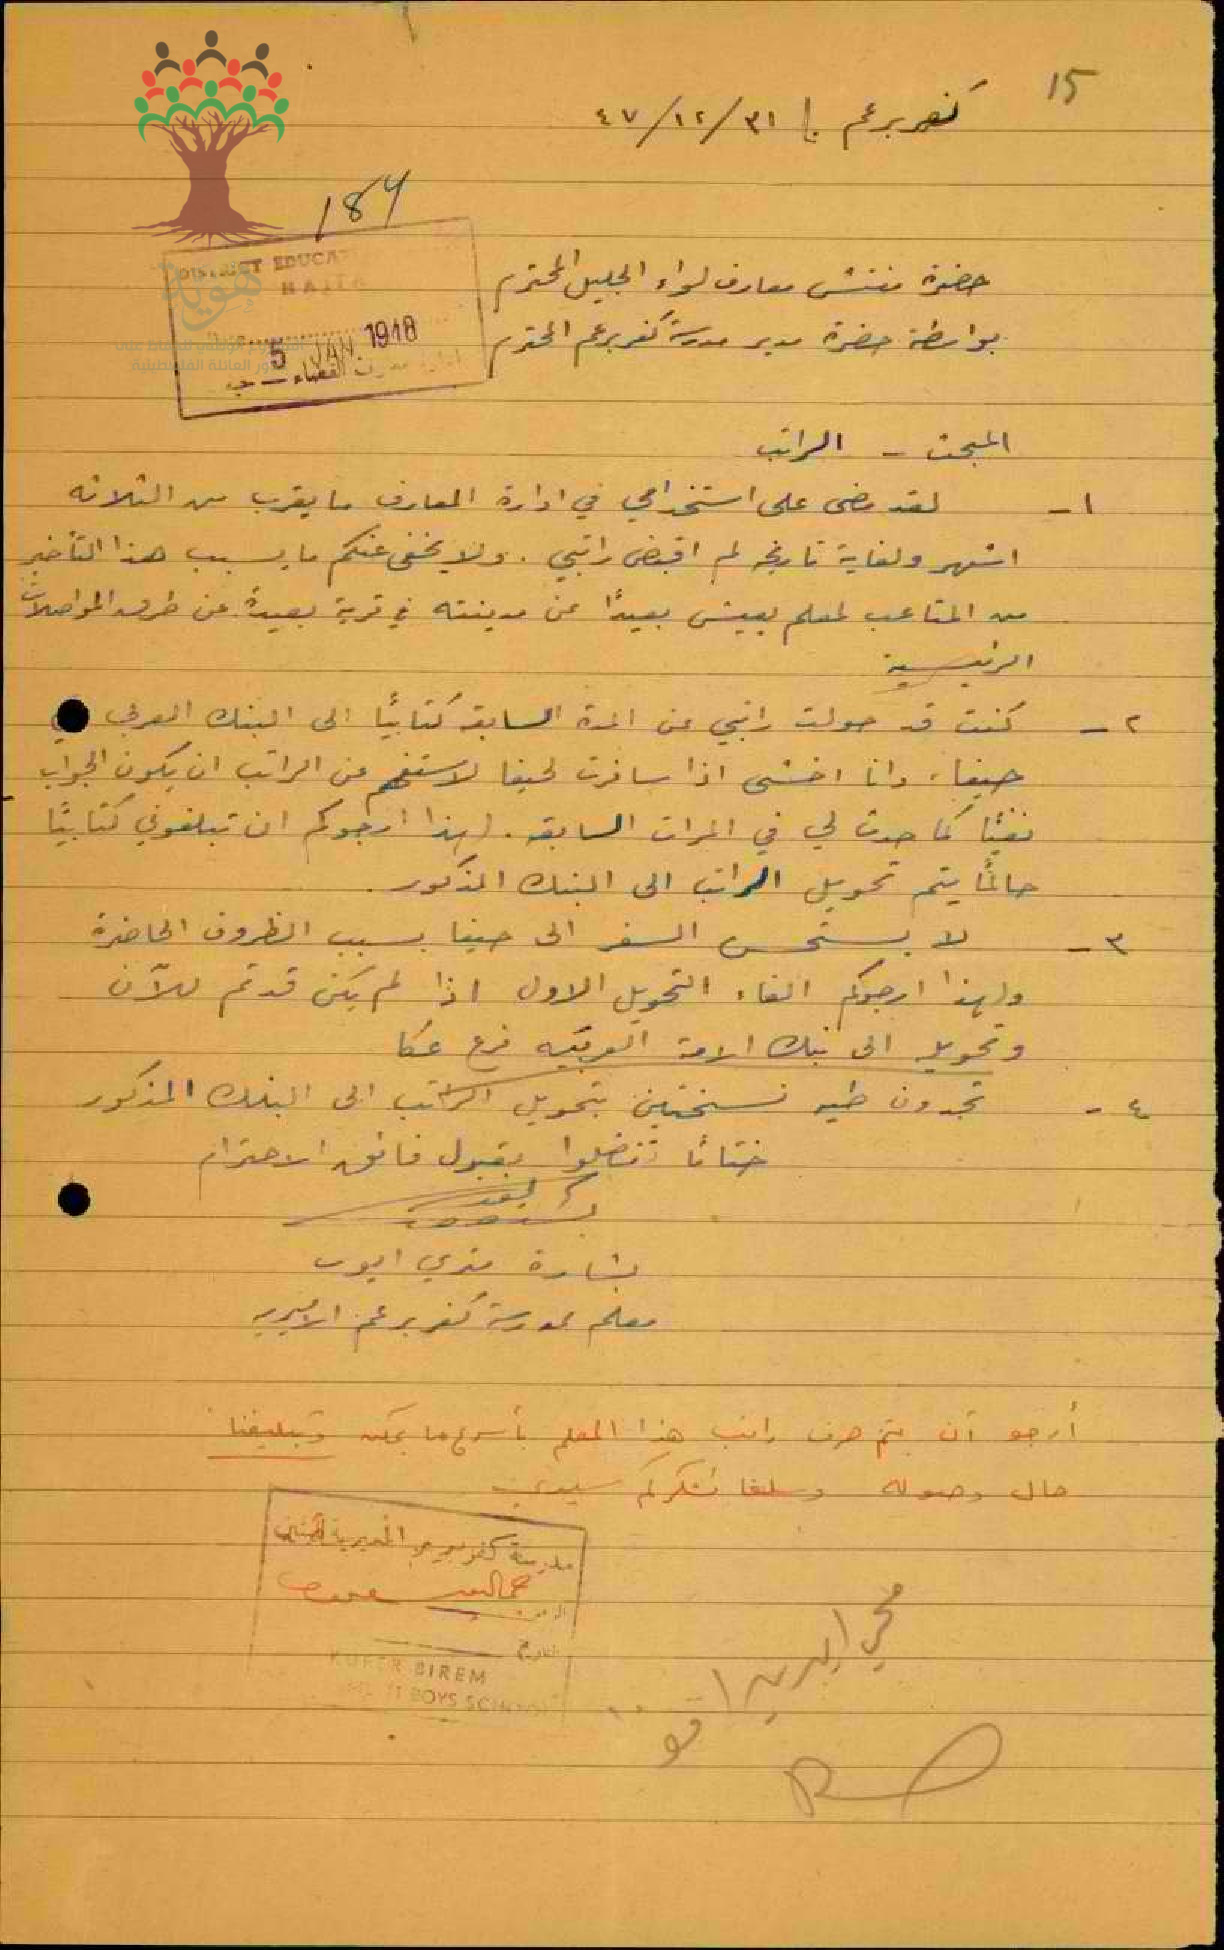 15
كفربرعم في ٣١/١٢/٤٧
184
DISTRICT EDUCAT
HAIFA
5 JAN. 1948
حضرة مفتش معارف لواء الجليل المحترم
بواسطة حضرة مدير مدرسة كفربرعم المحترم
المبحث - الراتب
١- لقد مضى على استخدامي في ادارة المعارف ما يقرب من الثلاثة
اشهر ولغاية تاريخه لم اقبض راتبي . ولا يخفى عنكم ما يسبب هذا التأخير
من المتاعب لمعلم يعيش بعيدًا عن مدينته في قرية بعيدة عن طرق المواصلات
الرئيسية
٢- كنت قد حولت راتبي عن المدة السابقة كتابيًا الى البنك العربي في
حيفا، وانا اخشى اذا سافرت لحيفا لاستفهم عن الراتب ان يكون الجواب
نفيًا كما حدث لي في المرات السابقة . لهذا ارجوكم ان تبلغوني كتابيًا
حالمًا يتم تحويل الراتب الى البنك المذكور .
٣- لا يستحسن السفر الى حيفا بسبب الظروف الحاضرة
ولهذا ارجوكم الغاء التحويل الاول اذا لم يكن قد تم للآن
وتحويله الى بنك الامة العربية فرع عكا
٤- تجدون طيه نسختين بتحويل الراتب الى البنك المذكور
ختامًا تفضلوا بقبول فائق الاحترام
بشارة متري ايوب
معلم بمدرسة كفربرعم الاميرية
أرجو أن يتم صرف راتب هذا المعلم بأسرع ما يمكن وتبليغنا
حال وصوله وسلفا نشكركم سيدي
مدرسة كفر برعم الاميرية للبنين
التاريخ
KUFER BIREM
BOYS SCHOOL